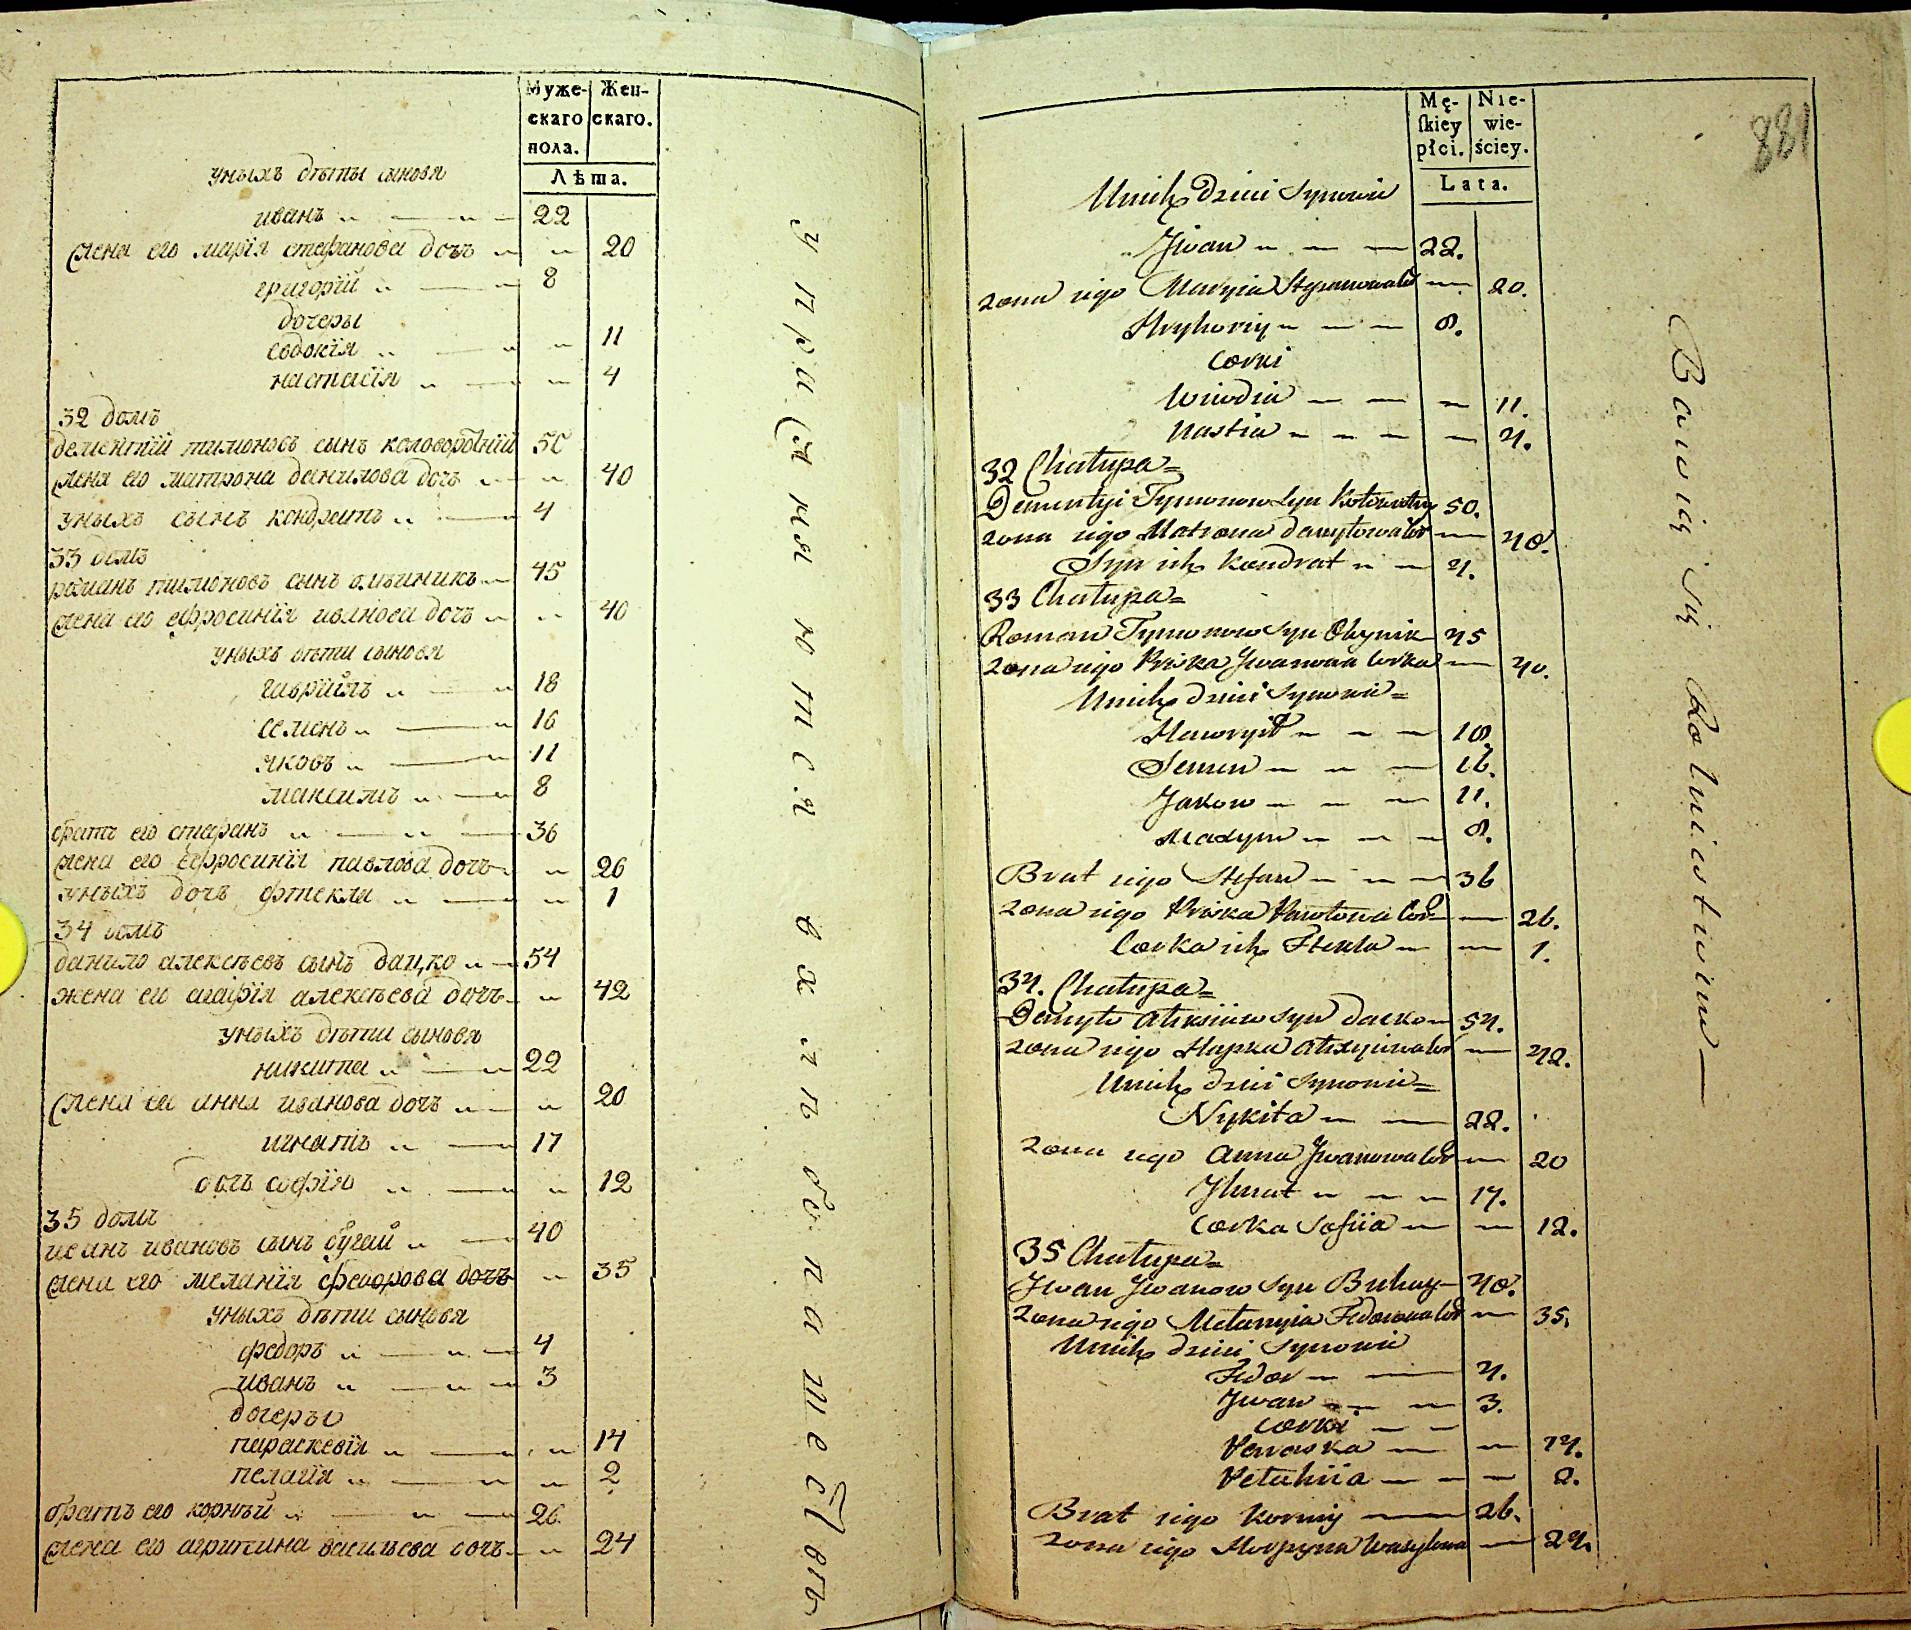 Муже-
скаго
пола.
Жен-
скаго.
Лѣта.
уныхъ дѣты сыновя
иванъ 22
жена его марія стефанова дочъ 20
григорій 8
дочеры
евдокія 11
настасія 4
32 домъ
дементій тимоновъ сынъ 50
жена его матрона данилова дочъ 40
уныхъ сынъ кондратъ 4
33 домъ
романъ тимоновъ сынъ 45
жена его ефросинія иванова дочъ 40
уныхъ дѣти сыновя
гаврийлъ 18
семенъ 16
яковъ 11
максимъ 8
братъ его стефанъ 36
жена его ефросинія павлова дочъ 26
уныхъ дочъ фтекла 1
34 домъ
данило алексѣевъ сынъ дацко 54
жена его агафія алексѣева дочъ 42
уныхъ дѣти сыновя
никита 22
жена его анна иванова дочъ 20
игнатъ 17
дочъ софію 12
35 домъ
иванъ ивановъ сынъ бугай 40
жена его меланія феодорова дочъ 35
уныхъ дѣти сыновя
федоръ 4
иванъ 3
дочеръы
параскевія 14
пелагія 2
братъ его корнѣй 26
жена его агрипина васильева дочъ 24
Mę-
ſkiey
płci.
Nie-
wie-
ściey.
Lata.
881
Unich dzieci synowie
Jwan 22.
zona iego Maryia 20.
Hryhoriy 8.
Corki
Wiwdia 11.
Nastia 4.
32 Chałupa=
Dementyi Tymonow Syn 50.
zona iego Matrona Danyłowa Cor 40.
Syn ich Kondrat 4.
33 Chałupa=
Roman Tymonow Syn Olynik 45
zona iego Priska Jwanowa Corka 40.
Unich dzieci Synowie=
Hawrył 18.
Semen 16.
Jakow 11.
Maxym 8.
Brat iego Stefan 36
zona iego Priska Pawłowa Cor 26.
Corka ich Ftekla 1.
34. Chałupa=
Danyło Alexiiew Syn Dacko 54.
zona iego Hapka Alexyiewa Cor 42.
Unich dzieci Synowie=
Nykita 22.
zona iego Anna Jwanowa Cor 20
Jhnat 17.
Corka Sofiia 12.
35 Chałupa=
Jwan Jwanow Syn Buhay 40.
zona iego Mełanyia Fedorowa Cor 35.
Unich dzieci Synowie
Fedor 4.
Jwan 3.
Corki
Paraska 14.
Pełahiia 2.
Brat iego Korniy 26.
zona iego Horpyna Wasylowa 24.